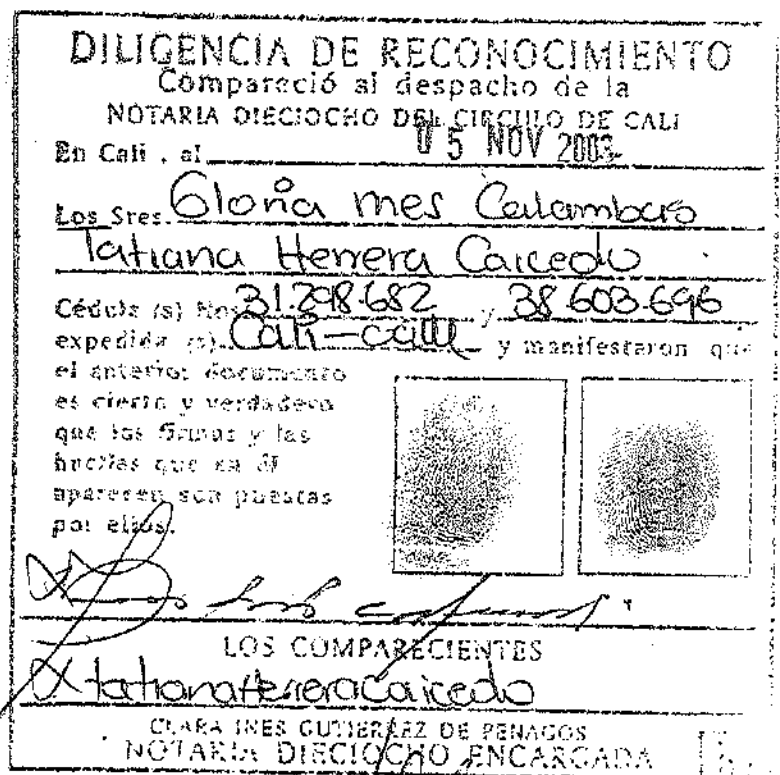 DILIGENCIA DE RECONOCIMIENTO
Compareció al despacho de la
NOTARIA DIECIOCHO DEL CIRCULO DE CALI
En Cali , al 05 NOV 2003
Los Sres. Gloria Ines Calambas
Tatiana Herrera Caicedo
Cédula (s) Nos 31.298.682 y 38.603.696
expedida (s) Cali-Cali y manifestaron que
el anterior documento
es cierto y verdadero
que las firmas y las
huellas que en él
aparecen son puestas
por ellos.
LOS COMPARECIENTES
X Tatiana Herrera Caicedo
CLARA INES GUTIERREZ DE PENAGOS
NOTARIA DIECIOCHO ENCARGADA